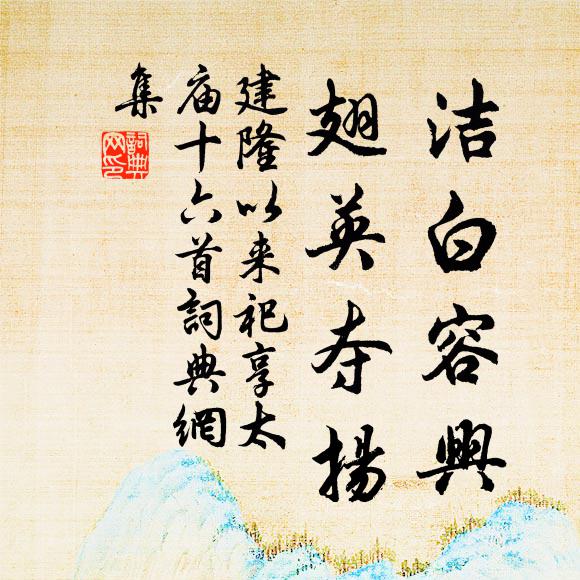 洁白容興
翅英夺揚
建隆以来祀享太
庙十六首詞典網
集
詞典
网印